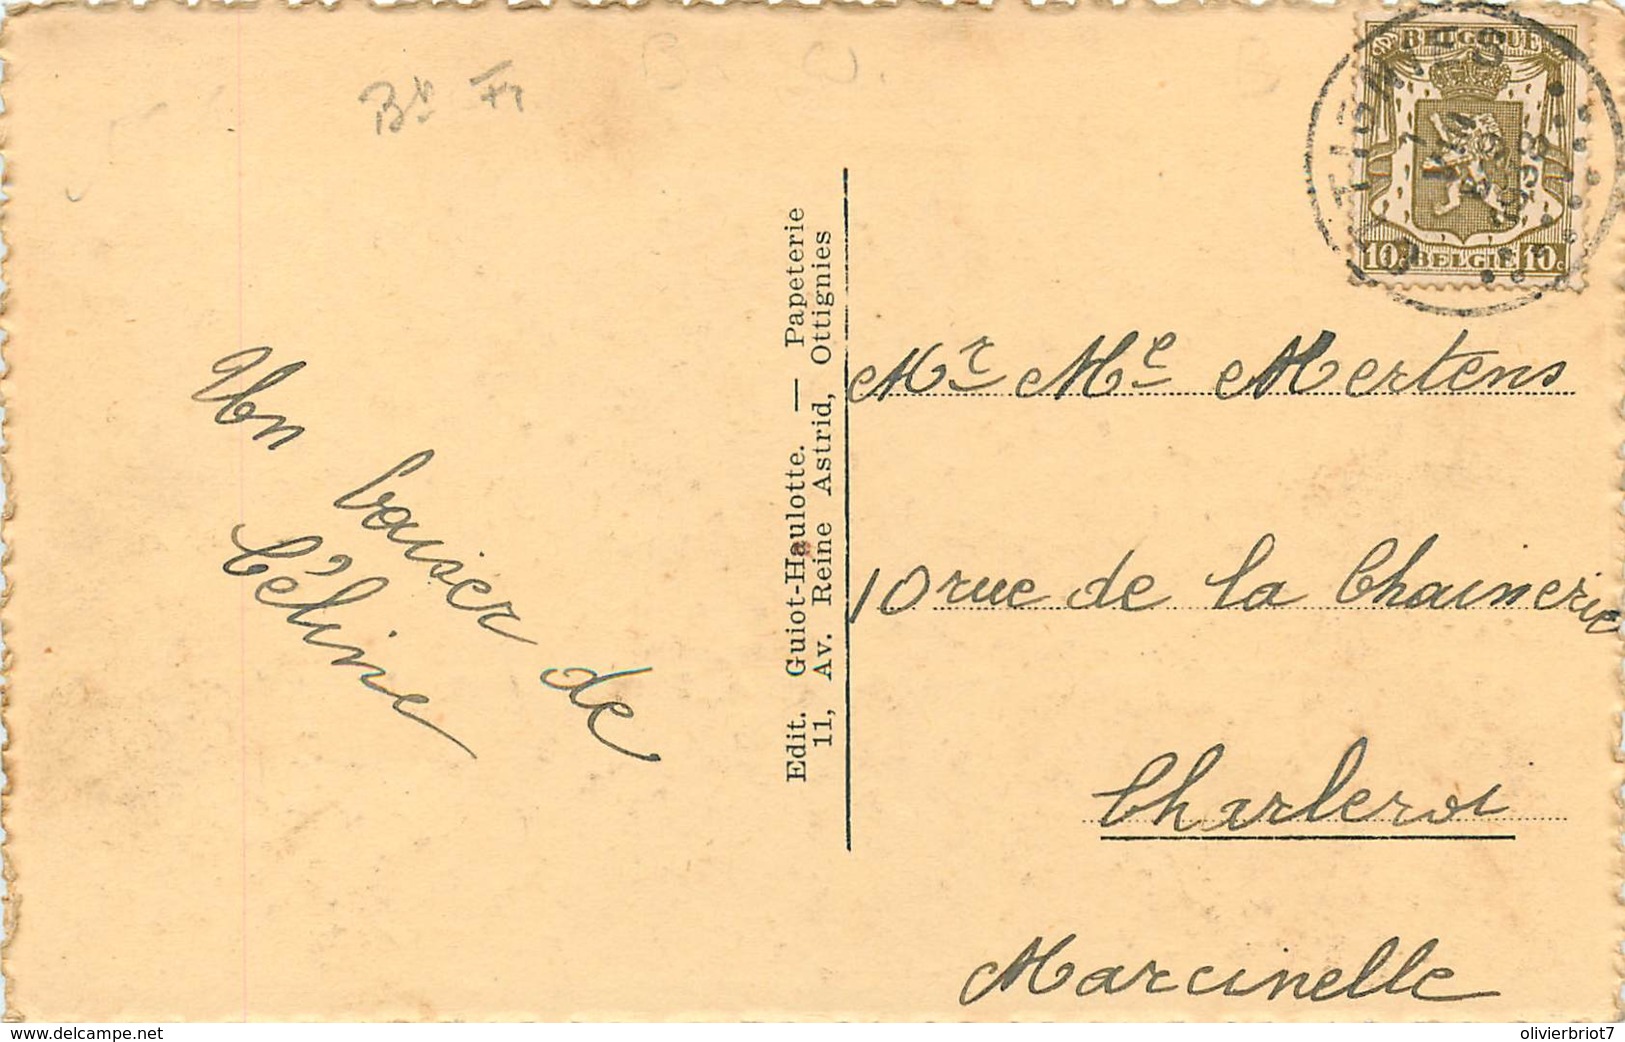 Bb Fr
BELGIQUE
10c BELGIE 10c
1938
Un baiser de
Céline
Edit. Guiot-Haulotte. — Papeterie
11, Av. Reine Astrid, Ottignies
Mr Me Mertens
10 rue de la Chainerie
Charleroi
Marcinelle
https://www.delcampe.net
olivierbriot7